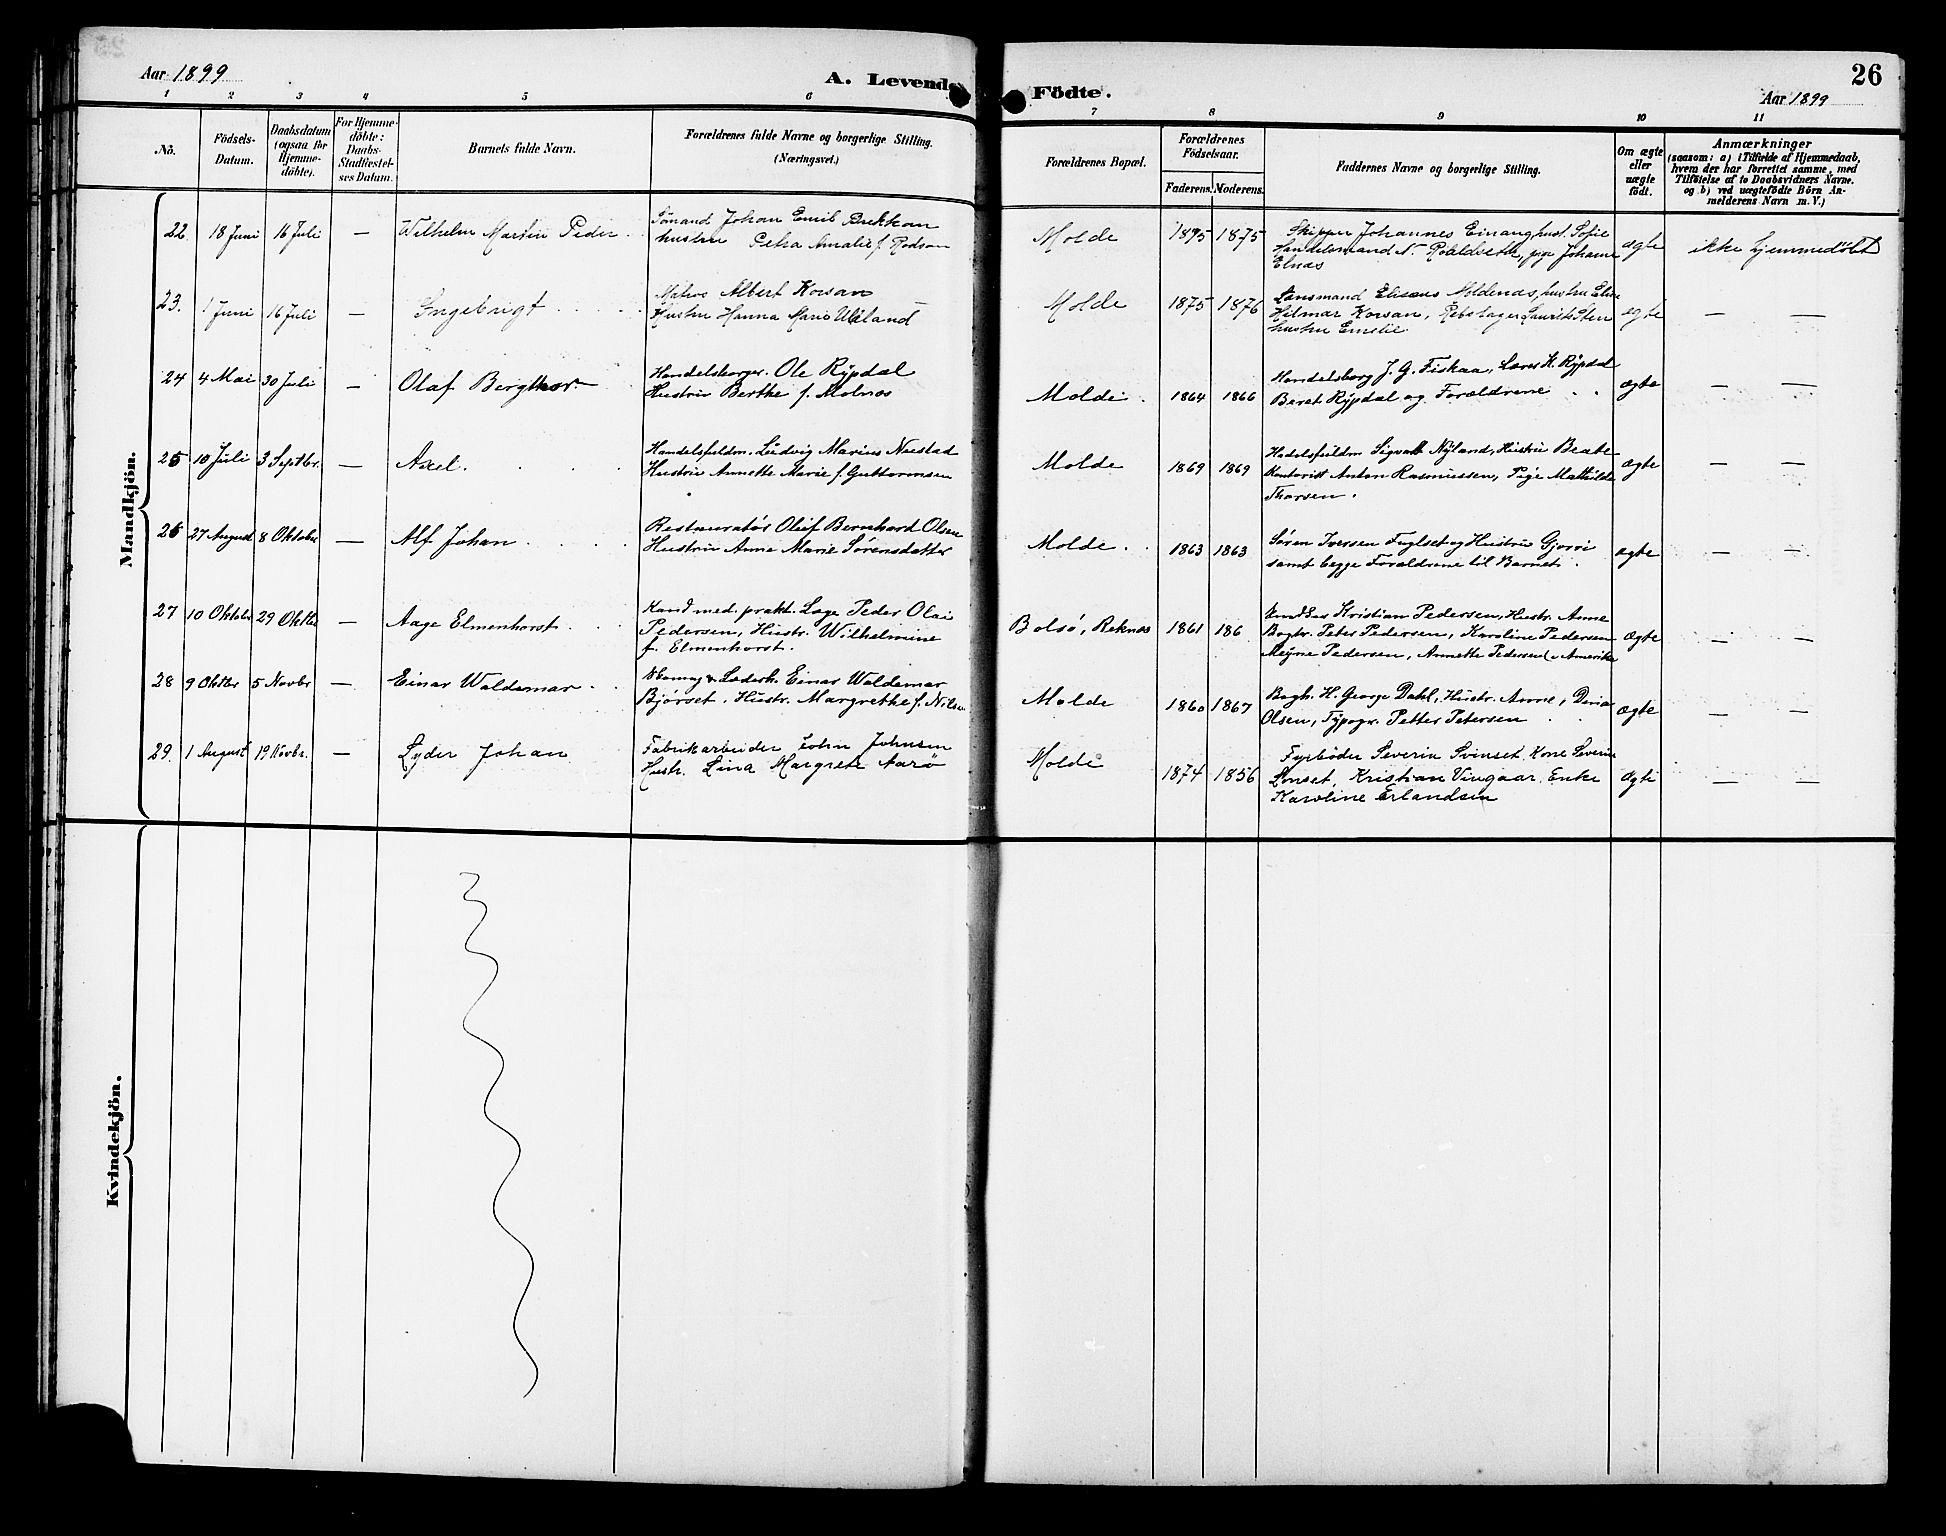 Aar 1899
A. Levende
Födte.
26
Aar 1899
1 2 3 4 5 6 7 8 9 10 11
No.
Födsels-
Datum.
Daabsdatum
(ogsaa for
Hjemme-
döbte).
For Hjemme-
döbte:
Daabs-
Stadfæstel-
ses Datum.
Barnets fulde Navn.
Forældrenes fulde Navne og borgerlige Stilling.
(Næringsvei.)
Forældrenes Bopæl.
Forældrenes
Födselsaar.
Faderens. Moderens.
Faddernes Navne og borgerlige Stilling.
Om ægte
eller
uægte
födt.
Anmærkninger
(saasom: a) i Tilfælde af Hjemmedaab,
hvem der har forrettet samme, med
Tilföielse af to Daabsvidners Navne.
og b) ved uægtefödte Börn An-
melderens Navn m. V.)
Mandkjön.
22 18 Juni 16 Juli — Wilhelm Martin Peder
Sömand Johan Emil Brekkan
hustru Petra Amalie f.
Molde 1875
Skipper Johannes Einang, hust. Sofie
Handelsmand N. Roaldseth, pige Johanne
Elnæs
ægte
ikke hjemmedöbt
23. 1 Juni 16 Juli — Ingebrigt
Matros Albert Korsan
Hustru Hanna Marie
Molde 1875 1876
Lensmand Moldenæs, hustru
Hilmar Korsan, Rebslager
hustru Emelie.
ægte — —
24 4 Mai 30 Juli — Olaf Bergthor
Handelsborger. Ole Rypdal
Hustru Berthe f. Molnæs
Molde. 1864 1866
Handelsborg J. G. Fiskaa, Lærer K. Rypdal
Beret Rypdal og Forældrene
ægte — —
25 10 Juli 3 Septbr. — Axel.
Handelsfuldm. Ludvig Marius Neestad
Hustru Annette Marie f. Guttormsen
Molde 1869 1869
Sigvatt Nyland, Hustru Beate
Kontorist Anton Rasmussen, Pige Mathilde
Thorsen.
ægte — —
26 27 August 8 Oktober — Alf Johan
Restauratör Oluf Bernhard Olsen
Hustru Anne Marie Sörensdatter
Molde. 1863 1863
Sören Iversen Fuglset og Hustru
samt begge Forældrene til Barnet.
ægte — —
27 10 Oktober 29 Oktbr — Aage Elmenhorst
Kand med. prakt. Læge Peder Olai
Pedersen, Hustr. Wilhelmine
f. Elmenhorst.
Bolsö, Reknæs 1861 186
Kristian Pedersen, Hustr. Anne
Bogtr. Peter Pedersen, Karoline Pedersen
Pedersen, Annette Pedersen (i Amerika
Ægte — —
28 9 Oktbr 5 Novbr — Einar Waldemar
Einar Waldemar
Björset. Hustr. Margrethe f. Nilsen
Molde 1860 1867
Bogh. H. George Dahl, Hustr. Anna,
Olsen, Typogr. Petter Petersen
ægte — —
29. 1 August 19 Novbr. — Lyder Johan
Fabrikarbeider John Johnsen
Hustr. Lina Margrete Aarö
Molde 1874 1856
Fyrböder Severin Svinset. Kone
Kristian Vingaar. Enke
Karoline Erlandsen
ægte — —
Kvindekjön.